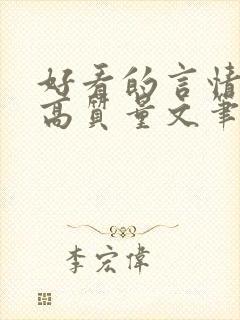 好看的言情
高质量文笔
李宏偉